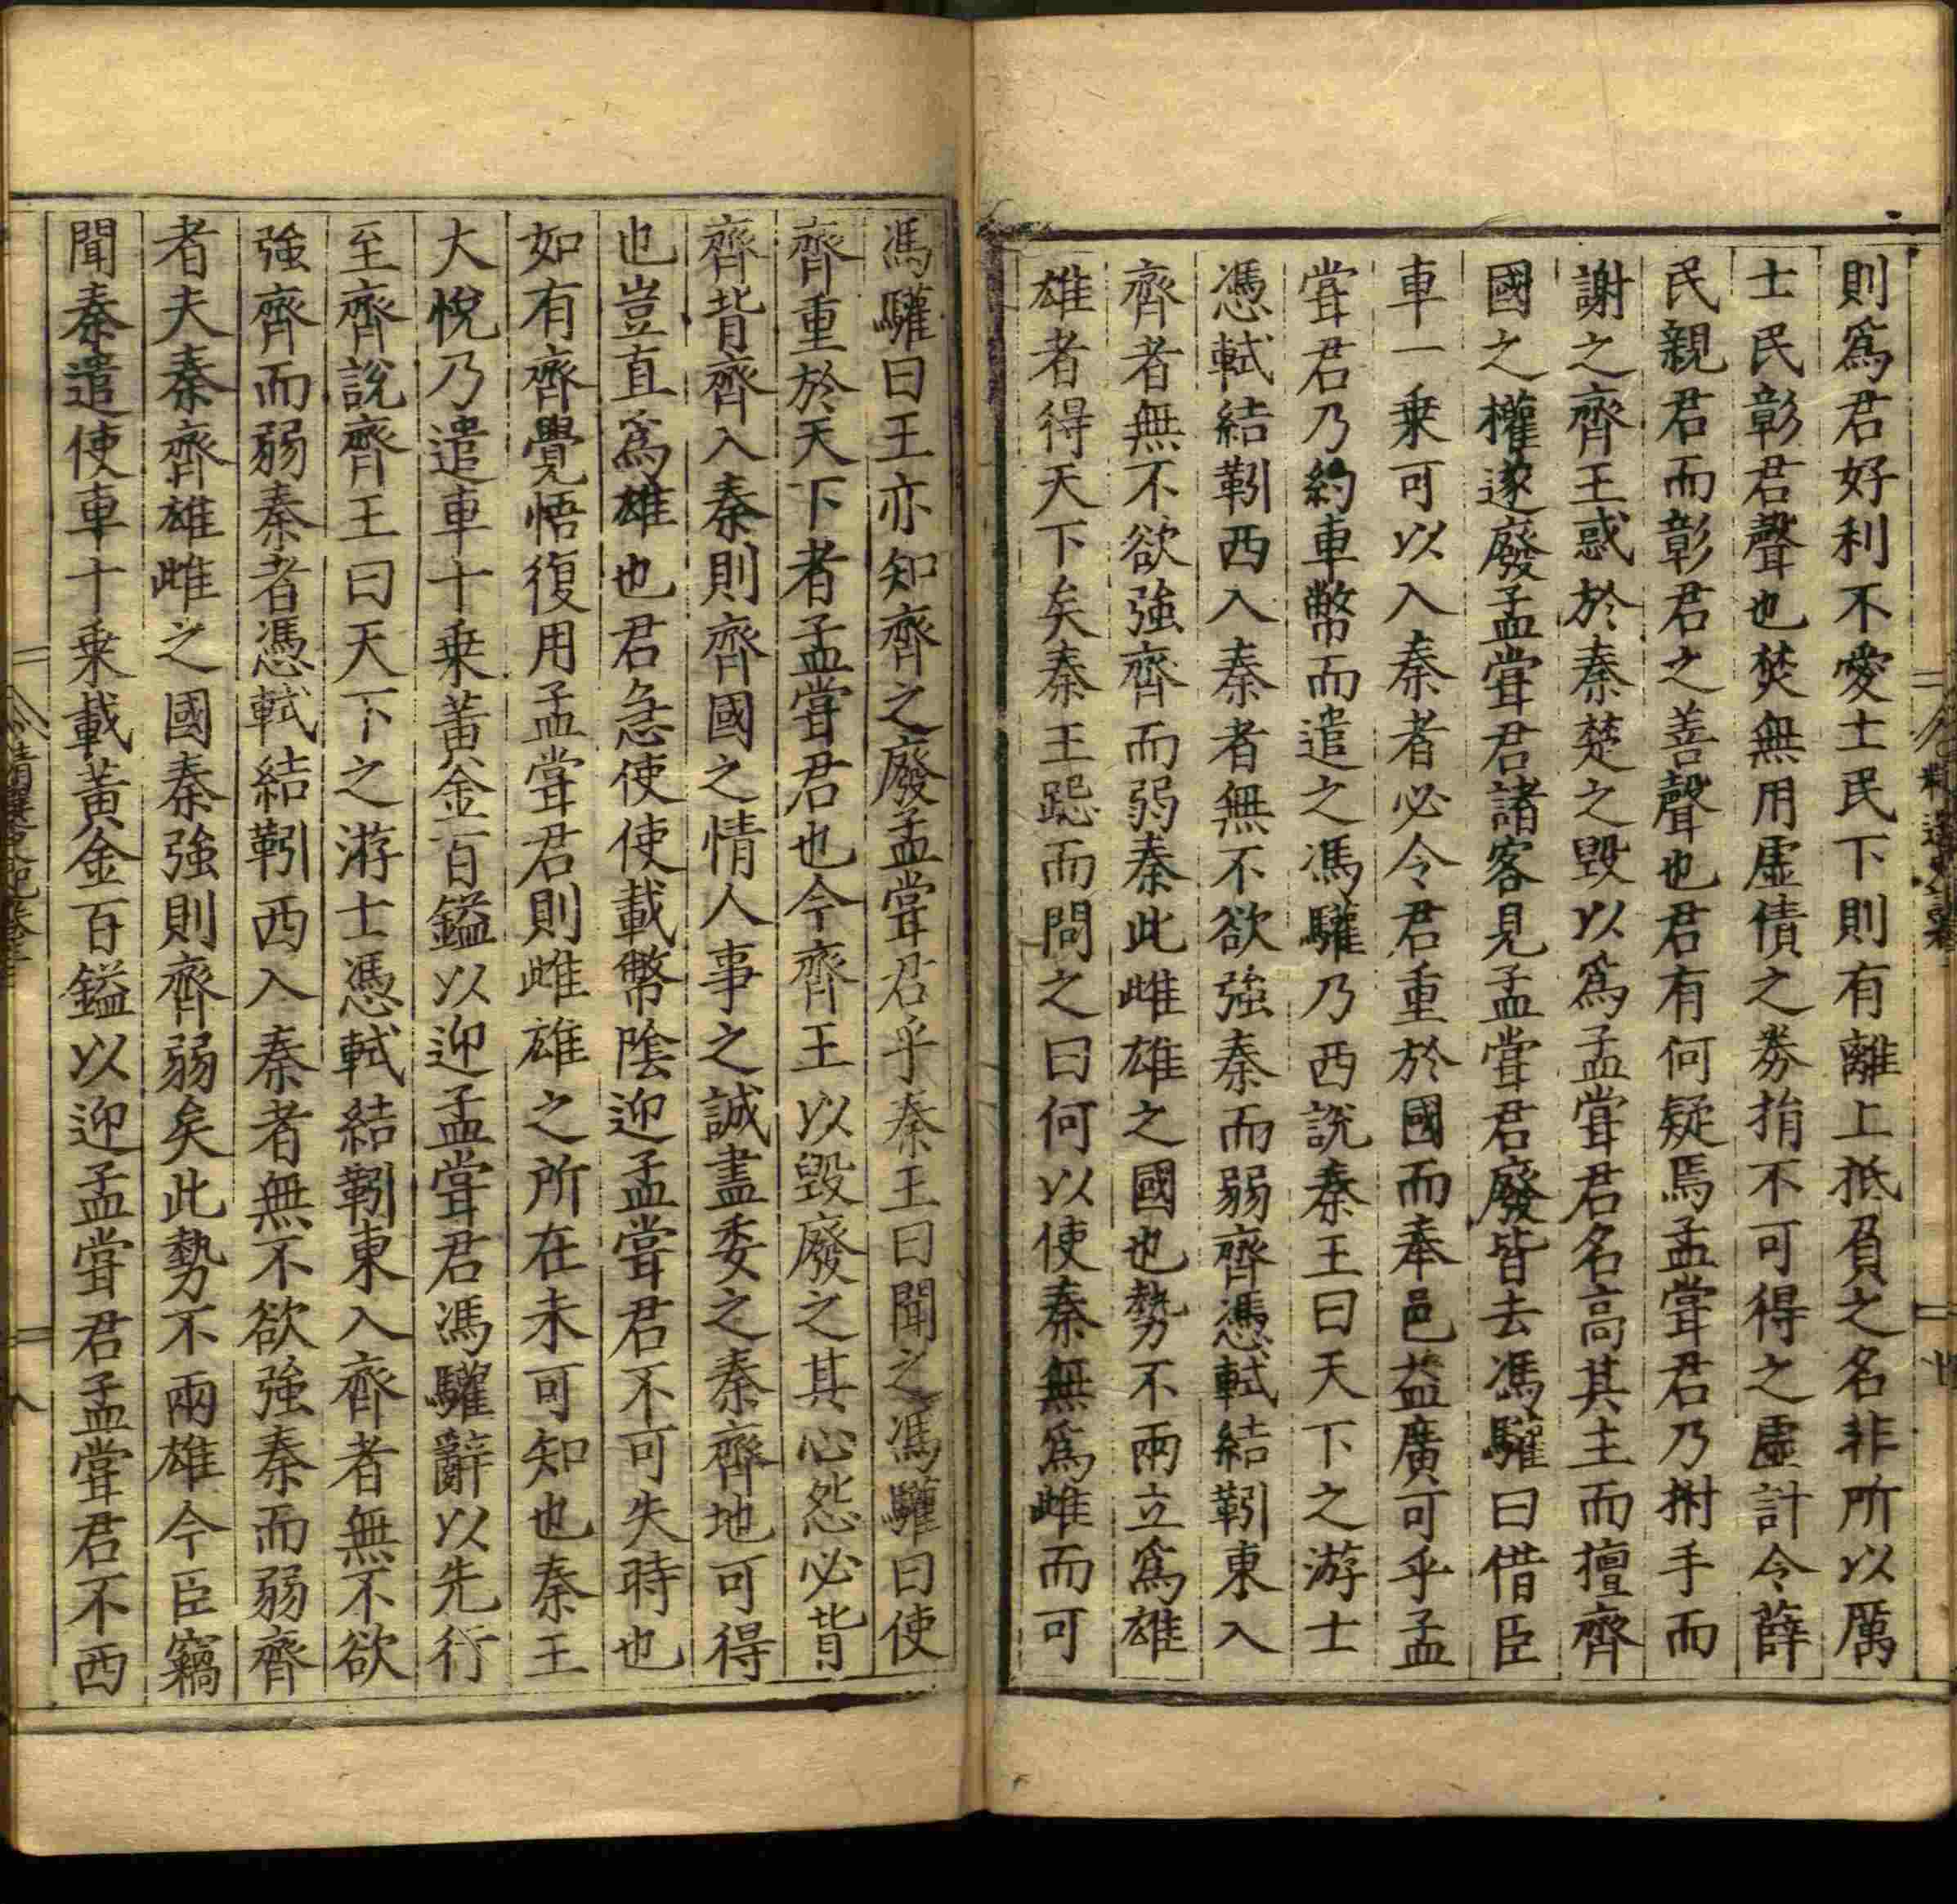 則爲君好利不愛士民下則有離上抵負之名非所以厲
士民彰君聲也焚無用虛債之券捐不可得之虛計令薛
民親君而彰君之善聲也君有何疑焉孟嘗君乃拊手而
謝之齊王惑於秦楚之毀以爲孟嘗君名高其主而擅齊
國之權遂廢孟嘗君諸客見孟嘗君廢皆去馮驩曰借臣
車一乗可以入秦者必令君重於國而奉邑益廣可乎孟
嘗君乃約車幣而遣之馮驩乃西說秦王曰天下之游士
憑軾結靷西入秦者無不欲強秦而弱齊憑軾結靷東入
齊者無不欲強齊而弱秦此雌雄之國也勢不兩立爲雄
雄者得天下矣秦王跽而問之曰何以使秦無爲雌而可
馮驩曰王亦知齊之廢孟嘗君乎秦王曰聞之馮驩曰使
齊重於天下者孟嘗君也今齊王以毀廢之其心怨必背
齊背齊入秦則齊國之情人事之誠盡委之秦齊地可得
也豈直爲雄也君急使使載幣陰迎孟嘗君不可失時也
如有齊覺悟復用孟嘗君則雌雄之所在未可知也秦王
大悅乃遣車十乗黃金百鎰以迎孟嘗君馮驩辭以先行
至齊說齊王曰天下之游士憑軾結靷東入齊者無不欲
強齊而弱秦者憑軾結靷西入秦者無不欲強秦而弱齊
者夫秦齊雄雌之國秦強則齊弱矣此勢不兩雄今臣竊
聞秦遣使車十乗載黃金百鎰以迎孟嘗君孟嘗君不西